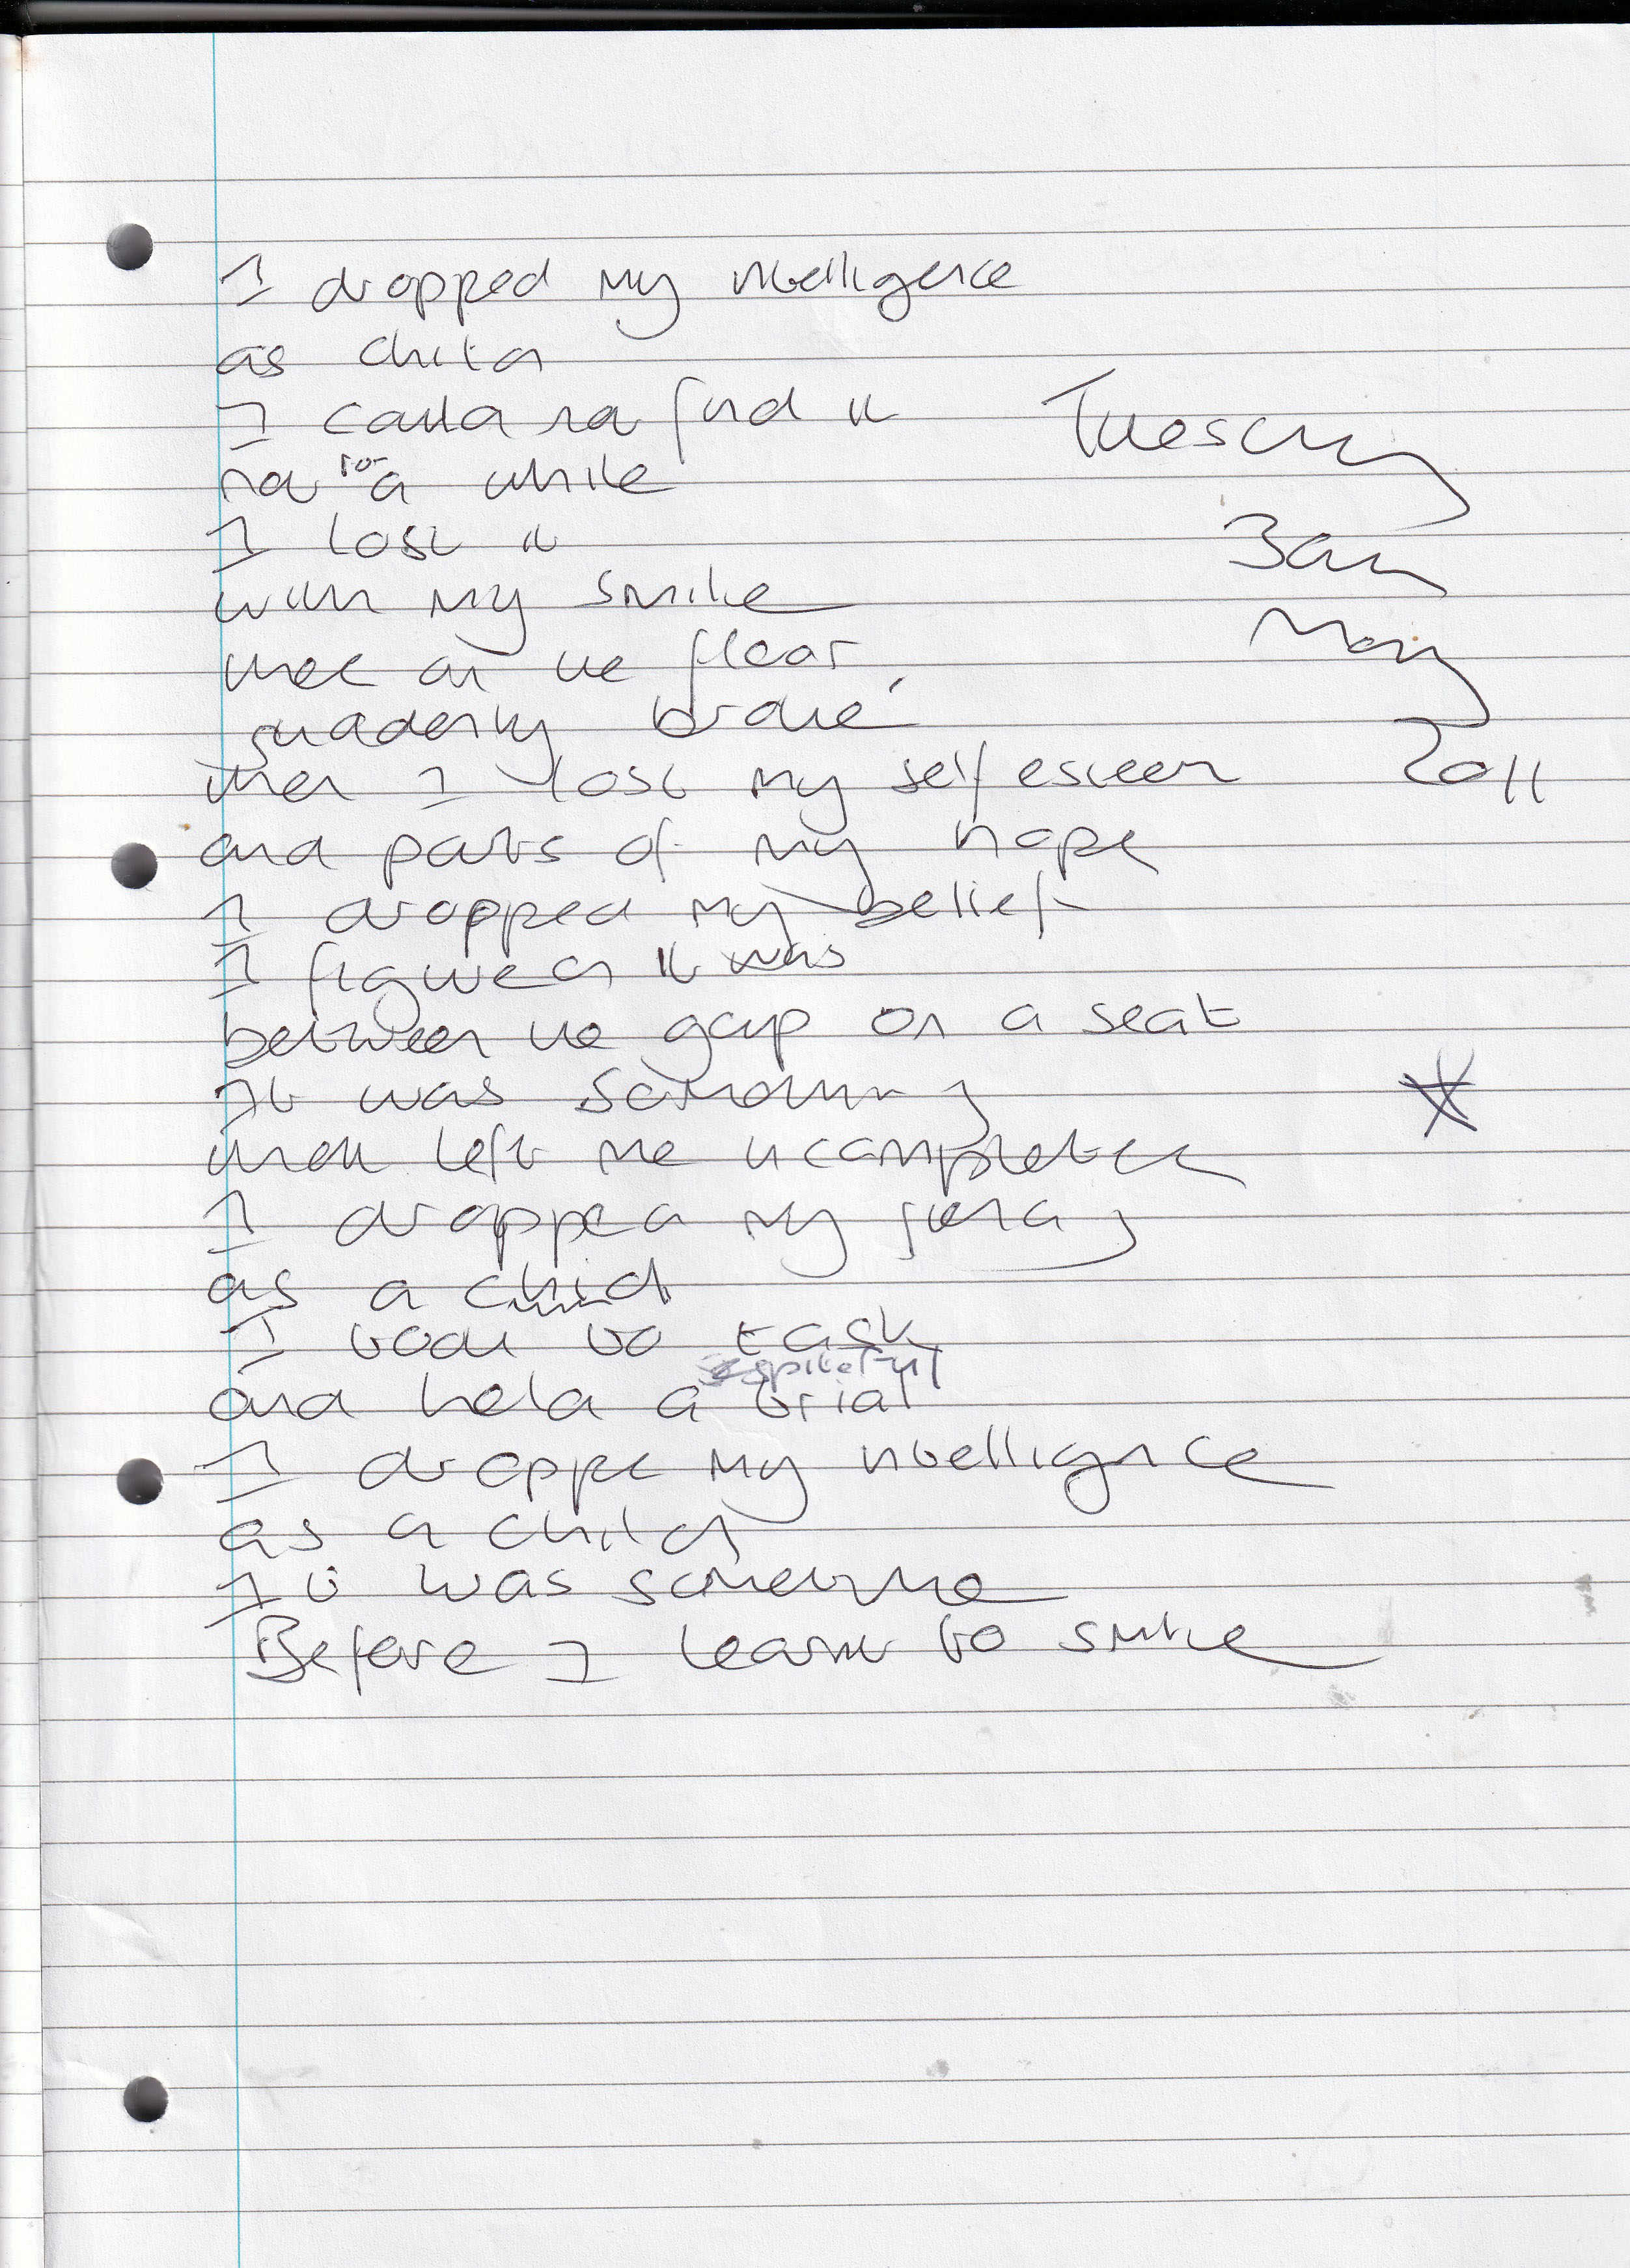 I dropped my intelligence
as child
I could not find it
not for a while
I lost it
with my smile
that on the floor
suddenly broke
then I lost my self esteem
and parts of my hope
I dropped my belief
I figured it was
between the gap on a seat
It was something
that left me incomplete
I dropped my
as a child
I took to task
and held a spiteful trial
I droppe my intelligence
as a child
It was sometime
Before I learnt to smile
Tuesday
3am
May
2011